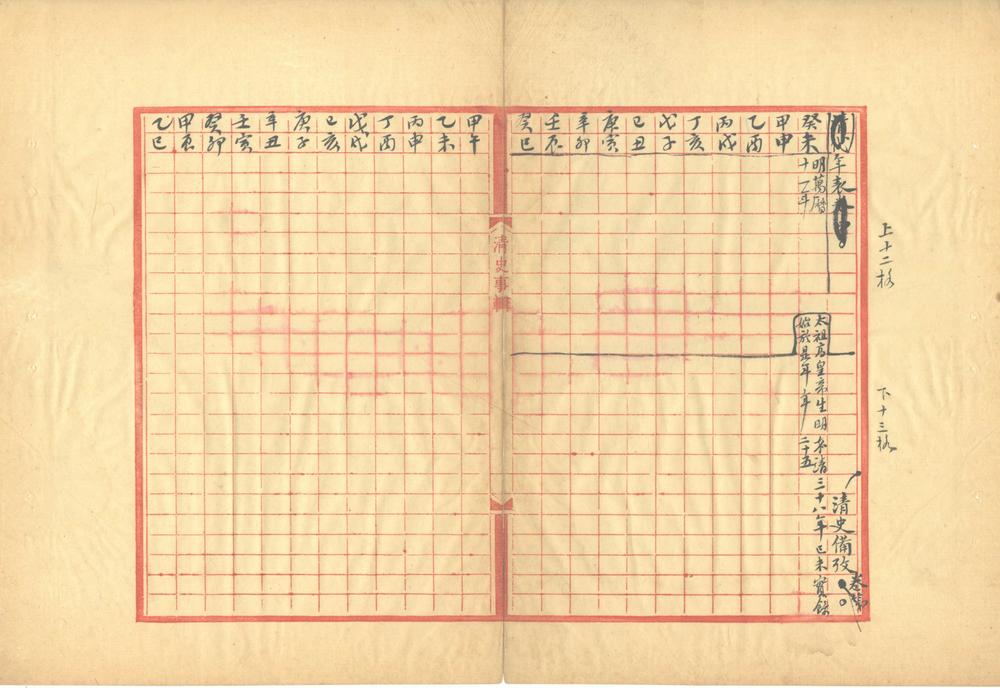 上十二格
下十三格
年表
清史備攷
卷第
癸未
明萬曆
十一年
太祖高皇帝生明
始於是年
年
本清
二十五
三十八年己未實錄
甲申
乙酉
丙戌
丁亥
戊子
己丑
庚寅
辛卯
壬辰
癸巳
清史事輯
甲午
乙未
丙申
丁酉
戊戌
己亥
庚子
辛丑
壬寅
癸卯
甲辰
乙巳